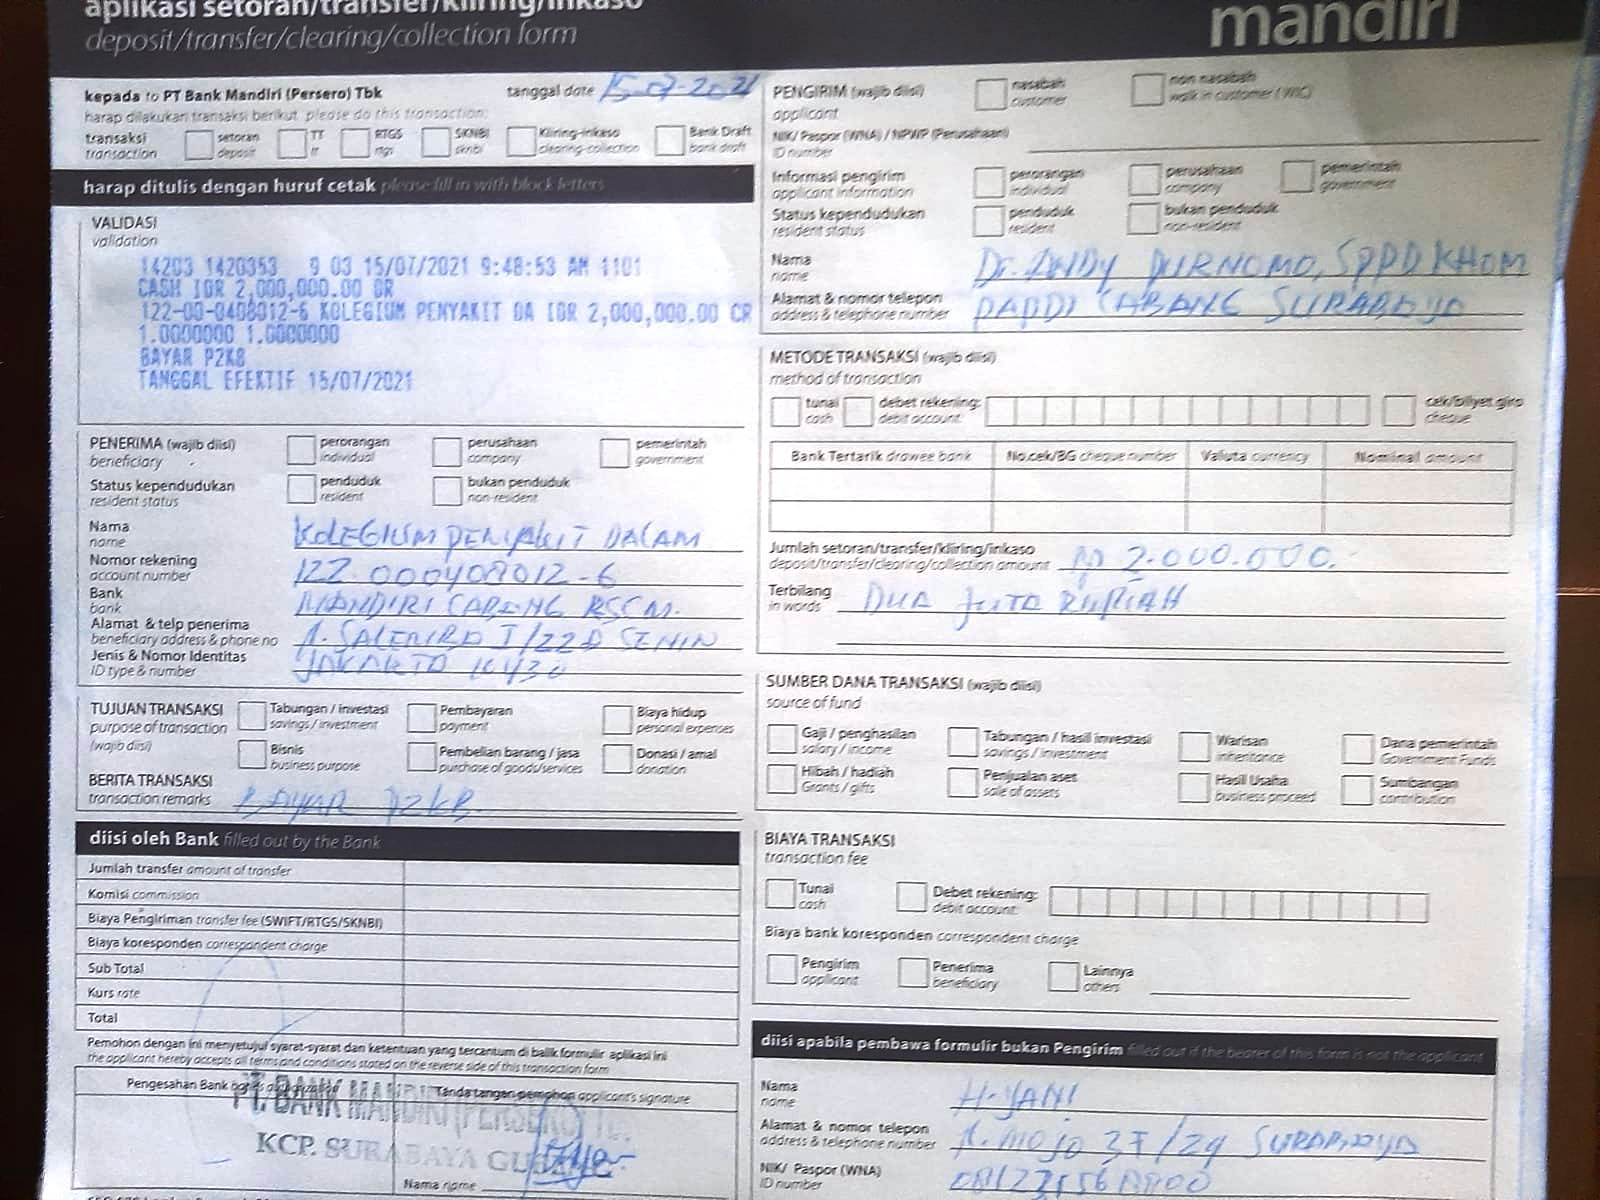 aplikasi setoran/transfer/kliring/inkaso
deposit/transfer/clearing/collection form
mandiri
kepada to PT Bank Mandiri (Persero) Tbk
tanggal date 15-07-2021
harap dilakukan transaksi berikut, please do this transaction:
transaksi
transaction
setoran
deposit
TT
tt
RTGS
rtgs
SKNBI
sknbi
Kliring-inkaso
clearing-collection
Bank Draft
bank draft
harap ditulis dengan huruf cetak please fill in with block letters
VALIDASI
validation
14203 1420353 9 03 15/07/2021 9:48:53 AM 1101
CASH IDR 2,000,000.00 DR
122-00-0408012-6 KOLEGIUM PENYAKIT DA IDR 2,000,000.00 CR
1.0000000 1.0000000
BAYAR P2KB
TANGGAL EFEKTIF 15/07/2021
PENERIMA (wajib diisi)
beneficiary
perorangan
individual
perusahaan
company
pemerintah
government
Status kependudukan
resident status
penduduk
resident
bukan penduduk
non-resident
Nama
name
KOLEGIUM PENYAKIT DALAM
Nomor rekening
account number
122.000408012-6
Bank
bank
MANDIRI CABANG RSCM.
Alamat & telp penerima
beneficiary address & phone no
SENEN
Jenis & Nomor Identitas
ID type & number
JAKARTA 10430
TUJUAN TRANSAKSI
purpose of transaction
(wajib diisi)
Tabungan / investasi
savings / investment
Pembayaran
payment
Biaya hidup
personal expenses
Bisnis
business purpose
Pembelian barang / jasa
purchase of goods/services
Donasi / amal
donation
BERITA TRANSAKSI
transaction remarks
BAYAR P2KB.
diisi oleh Bank filled out by the Bank
Jumlah transfer amount of transfer
Komisi commission
Biaya Pengiriman transfer fee (SWIFT/RTGS/SKNBI)
Biaya koresponden correspondent charge
Sub Total
Kurs rate
Total
Pemohon dengan ini menyetujui syarat-syarat dan ketentuan yang tercantum di balik formulir aplikasi ini
the applicant hereby accepts all terms and conditions stated on the reverse side of this transaction form
Pengesahan Bank
Tanda tangan pemohon applicant's signature
PT. BANK MANDIRI (PERSERO)
KCP. SURABAYA
Nama name
PENGIRIM (wajib diisi)
applicant
nasabah
customer
non nasabah
walk in customer (WIC)
NIK/ Paspor (WNA) / NPWP (Perusahaan)
ID number
Informasi pengirim
applicant information
perorangan
individual
perusahaan
company
pemerintah
government
Status kependudukan
resident status
penduduk
resident
bukan penduduk
non-resident
Nama
name
Dr. ANDY PURNOMO, SPPD KHOM
Alamat & nomor telepon
address & telephone number
PAPDI CABANG SURABAYA
METODE TRANSAKSI (wajib diisi)
method of transaction
tunai
cash
debet rekening:
debit account:
cek/bilyet giro
cheque
Bank Tertarik drawee bank
No.cek/BG cheque number
Valuta currency
Nominal amount
Jumlah setoran/transfer/kliring/inkaso
deposit/transfer/clearing/collection amount
2.000.000.-
Terbilang
in words
DUA JUTA RUPIAH
SUMBER DANA TRANSAKSI (wajib diisi)
source of fund
Gaji / penghasilan
salary / income
Tabungan / hasil investasi
savings / investment
Warisan
inheritance
Dana pemerintah
Government Funds
Hibah / hadiah
Grants / gifts
Penjualan aset
sale of assets
Hasil Usaha
business proceed
Sumbangan
contribution
BIAYA TRANSAKSI
transaction fee
Tunai
cash
Debet rekening:
debit account:
Biaya bank koresponden correspondent charge
Pengirim
applicant
Penerima
beneficiary
Lainnya
others
diisi apabila pembawa formulir bukan Pengirim filled out if the bearer of this form is not the applicant
Nama
name
H. YANI
Alamat & nomor telepon
address & telephone number
SURABAYA
NIK/ Paspor (WNA)
ID number